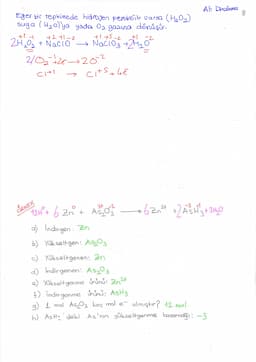 Eğer bir tepkimede hidrojen peroksit varsa (H₂O₂)
suya (H₂O)'ya yada O₂ gazına dönüşür.
+1 -1 +1 +1 -2 +1 +5 -2 +1 -2
2H₂O₂ + NaClO → NaClO₃ + 2H₂O
2/O₂⁻¹ + 2e → 2O⁻²
Cl⁺¹ → Cl⁺⁵ + 4e
Örnek
12H⁺ + 6Zn⁰ + As₂O₃ → 6Zn²⁺ + 2AsH₃ + 3H₂O
a) İndirgen: Zn
b) Yükseltgen: As₂O₃
c) Yükseltgenen: Zn
d) İndirgenen: As₂O₃
e) Yükseltgenme ürünü: Zn²⁺
f) İndirgenme ürünü: AsH₃
g) 1 mol As₂O₃ kaç mol e⁻ almıştır? 12 mol
h) AsH₃'deki As'nin yükseltgenme basamağı: -3